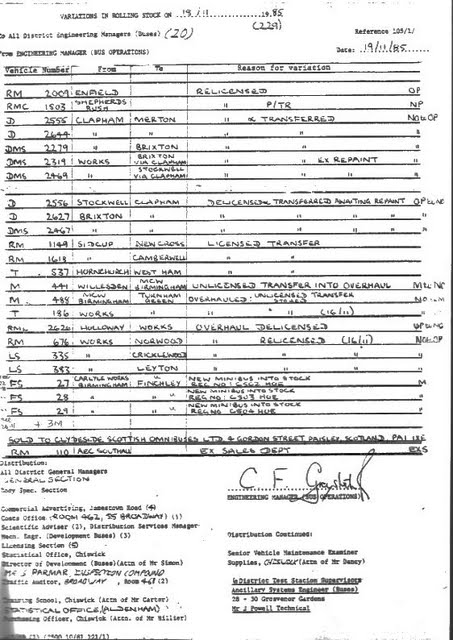 VARIATIONS IN ROLLING STOCK ON 19/11 1985
(229)
To All District Engineering Managers (Buses) (20) Reference 105/1/
From ENGINEERING MANAGER (BUS OPERATIONS) Date: 19/11/85
Vehicle Number From To Reason for variation
RM 2009 ENFIELD RELICENSED OP
RMC 1503 SHEPHERDS BUSH " P/TR NP
D 2555 CLAPHAM MERTON " & TRANSFERRED
D 2644 " " " "
DMS 2279 " BRIXTON " "
DMS 2319 WORKS BRIXTON VIA CLAPHAM " " EX REPAINT "
DMS 2469 " STOCKWELL VIA CLAPHAM " " " "
D 2556 STOCKWELL CLAPHAM DELICENSED & TRANSFERRED AWAITING REPAINT
D 2627 BRIXTON " " " " "
DMS 2467 " " " " " "
RM 1149 SIDCUP NEW CROSS LICENSED TRANSFER
RM 1613 " CAMBERWELL " "
T 537 HORNCHURCH WEST HAM " "
M 441 WILLESDEN MCW BIRMINGHAM UNLICENSED TRANSFER INTO OVERHAUL
M 488 MCW BIRMINGHAM TURNHAM GREEN OVERHAULED: UNLICENSED TRANSFER STORED
T 186 WORKS " " " " (16/11)
RML 2620 HOLLOWAY WORKS OVERHAUL DELICENSED
RM 676 WORKS NORWOOD " RELICENSED (16/11)
LS 335 " CRICKLEWOOD " " "
LS 383 " LEYTON " " "
FS 27 CARLYLE WORKS BIRMINGHAM FINCHLEY NEW MINIBUS INTO STOCK REG NO: C502 HOE M
FS 28 " " NEW MINIBUS INTO STOCK REG NO: C503 HOE "
FS 29 " " NEW MINIBUS INTO STOCK REG NO C504 HOE "
+ 3M
SOLD TO CLYDESIDE SCOTTISH OMNIBUSES LTD, 4 GORDON STREET, PAISLEY, SCOTLAND, PA1 1XE
RM 110 AEC SOUTHALL EX SALES DEPT EXS
Distribution:
All District General Managers
GENERAL SECTION
Body Spec. Section
ENGINEERING MANAGER (BUS OPERATIONS)
Commercial Advertising, Jamestown Road (4)
Costs Office (ROOM 462, 55 BROADWAY) (1)
Scientific Adviser (2), Distribution Services Manager
Mech. Engr. (Development Buses) (3)
Licensing Section (5)
Statistical Office, Chiswick
Director of Development (Buses)(Attn of Mr Simon)
MR J PARMAR INSPECTION COMPOUND
Traffic Auditor, BROADWAY, ROOM 461 (2)
Training School, Chiswick (Attn of Mr Carter)
STATISTICAL OFFICE (ALDENHAM)
Purchasing Officer, Chiswick (Attn. of Mr Hillier)
Distribution Continued:
Senior Vehicle Maintenance Examiner
Supplies, CHISWICK (Attn of Mr Dancy)
6 District Test Station Supervisors
Ancillary Systems Engineer (Buses)
28 - 30 Grosvenor Gardens
Mr J Powell Technical